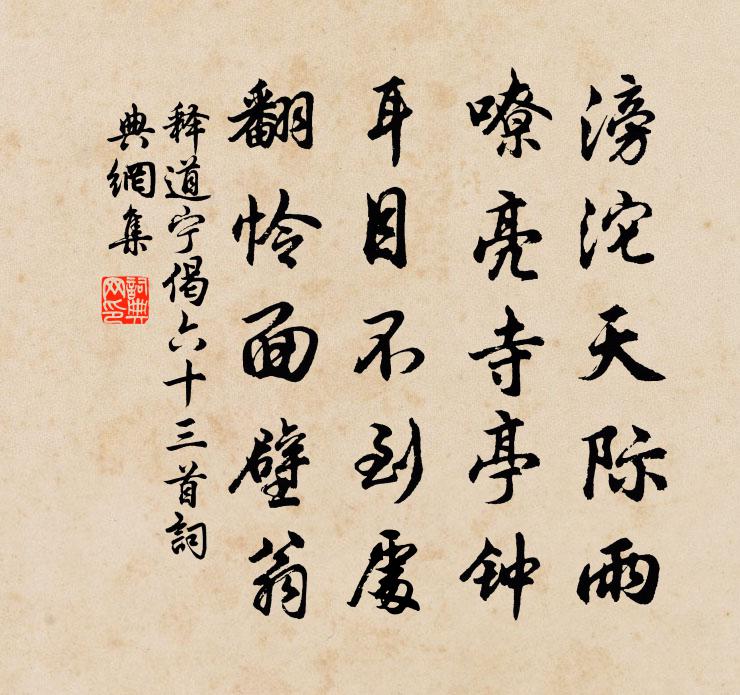 滂沱天际雨
嘹亮寺亭钟
耳目不到處
翻怜面壁翁
释道宁偈六十三首詞
典網集
詞典
网印